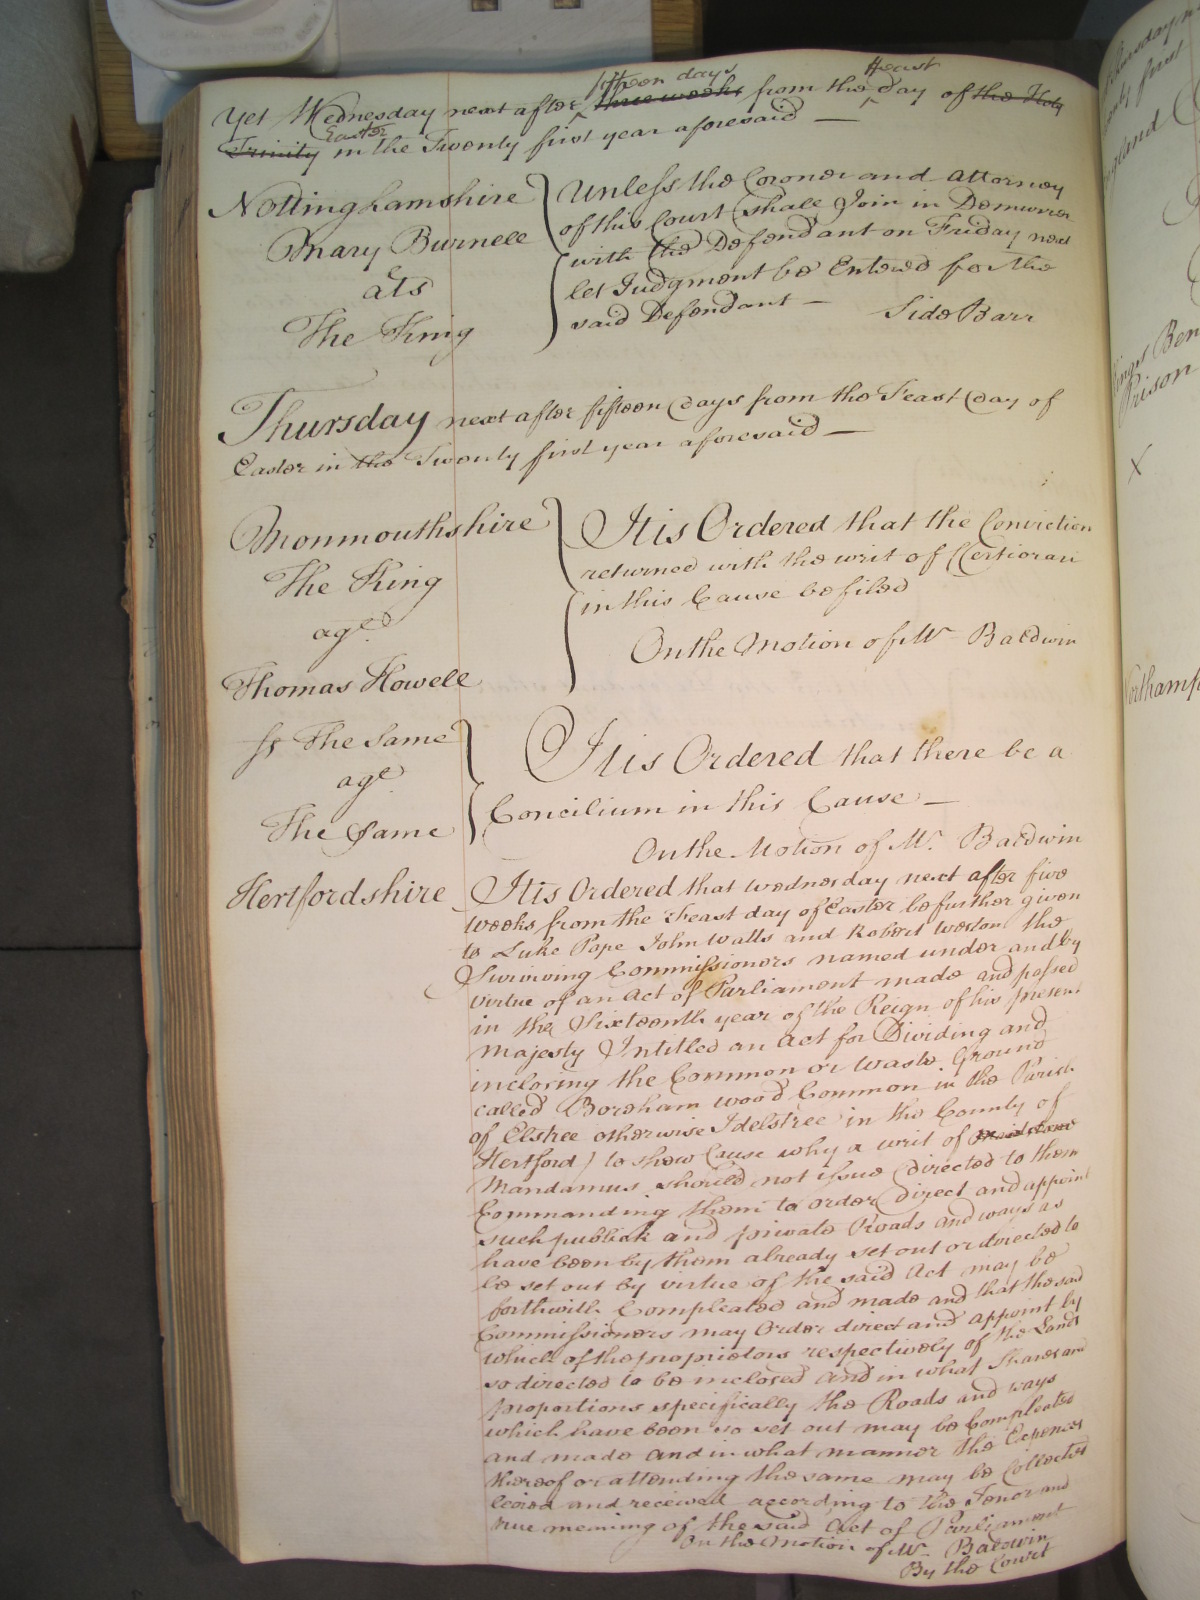 fifteen days Feast
Yet Wednesday next after three weeks from the day of the Holy
Easter
Trinity in the Twenty first year aforesaid —
Nottinghamshire
Mary Burnell
ats
The King
Unless the Coroner and Attorney
of this Court shall Join in Demurrer
with the Defendant on Friday next
let Judgment be Entered for the
said Defendant —
Side Barr
Thursday next after fifteen Days from the Feast Day of
Easter in the Twenty first year aforesaid —
Monmouthshire
The King
agt
Thomas Howell
It is Ordered that the Conviction
returned with the writ of Certiorari
in this Cause be filed
On the Motion of Mr Baldwin
Ss The Same
agt
The Same
It is Ordered that there be a
Concilium in this Cause —
On the Motion of Mr. Baldwin
Hertfordshire
It is Ordered that Wednesday next after five
weeks from the Feast day of Easter be further given
to Luke Pope John Walls and Robert Weston the
Surviving Commissioners named under and by
virtue of an Act of Parliament made and passed
in the Sixteenth year of the Reign of his present
Majesty Intitled an Act for Dividing and
inclosing the Common or Waste Ground
called Boreham wood Common in the Parish
of Elstree otherwise Idelstree in the County of
Hertford) to shew Cause why a writ of
Mandamus should not issue Directed to them
Commanding them to order Direct and appoint
such publick and private Roads and ways as
have been by them already set out or directed to
be set out by virtue of the said Act may be
forthwith Compleated and made and that the said
Commissioners may Order direct and appoint by
which of the proprietors respectively of the Lands
so directed to be inclosed and in what Shares and
proportions specifically the Roads and ways
which have been so set out may be Compleated
and made and in what manner the Expences
thereof or attending the same may be Collected
levied and received according to the Tenor and
true meaning of the said Act of Parliament
On the Motion of Mr. Baldwin
By the Court
Thursday
England
Kinges Ben
Prison
X
Northamp